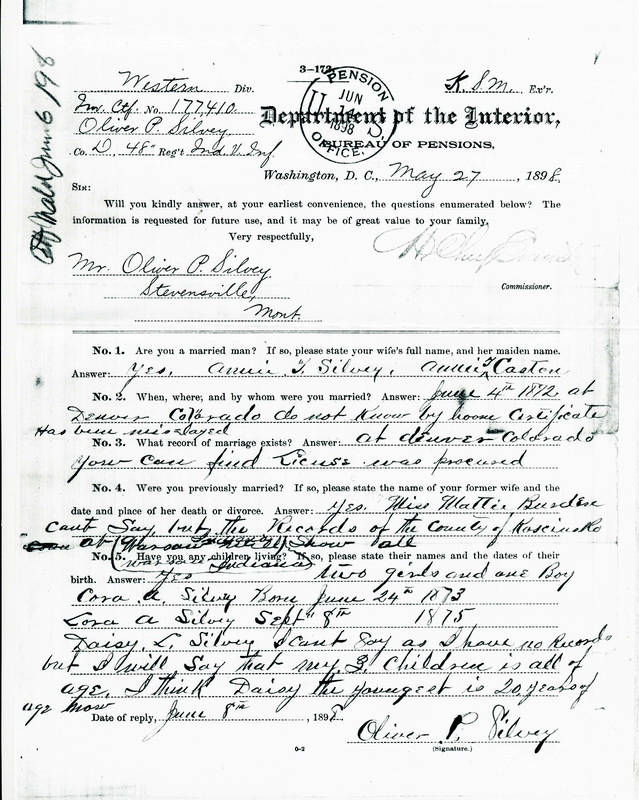 3-173
Western Div.
Inv. Ctf. No. 177,410.
Oliver P. Silvey
Co. D, 48" Reg't Ind. V. Inf.
K.S.M. Ex'r.
PENSION OFFICE
JUN
1898
Department of the Interior,
BUREAU OF PENSIONS,
Washington, D. C., May 27, 1898.
SIR:
Will you kindly answer, at your earliest convenience, the questions enumerated below? The
information is requested for future use, and it may be of great value to your family.
Very respectfully,
Commissioner.
Mr. Oliver P. Silvey
Stevensville,
Mont.
No. 1. Are you a married man? If so, please state your wife's full name, and her maiden name.
Answer: Yes. Annie T. Silvey. Annie T Caston
No. 2. When, where, and by whom were you married? Answer: June 4th 1872 at
Denver Colorado do not Know by hoom Certificate
Has been misslayed
No. 3. What record of marriage exists? Answer: at denver Colorado
yow can find License was procured
No. 4. Were you previously married? If so, please state the name of your former wife and the
date and place of her death or divorce. Answer: Yes. Miss Mattie
cant Say but the Records of the County of Kosciusko
at Warsaw Show all
(warsaw Indiana)
No. 5. Have you any children living? If so, please state their names and the dates of their
birth. Answer: Yes two girls and one Boy
Cora A. Silvey Born June 24th 1873
Lora A Silvey Sept" 8th 1875
Daisy L. Silvey I cant Say as I have no Records
but I will Say that my 3 Children is all of
age. I think Daisy the youngest is 20 years of
age now
Date of reply, June 8th, 1898
Oliver P. Silvey
(Signature.)
6-2